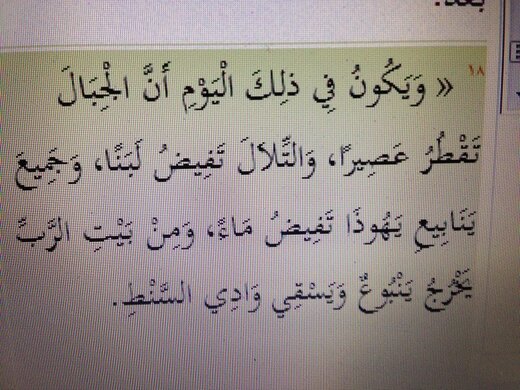 بعد.
١٨ « وَيَكُونُ فِي ذلِكَ الْيَوْمِ أَنَّ الْجِبَالَ
تَقْطُرُ عَصِيرًا، وَالتِّلاَلَ تَفِيضُ لَبَنًا، وَجَمِيعَ
يَنَابِيعِ يَهُوذَا تَفِيضُ مَاءً، وَمِنْ بَيْتِ الرَّبِّ
يَخْرُجُ يَنْبُوعٌ وَيَسْقِي وَادِي السَّنْطِ.